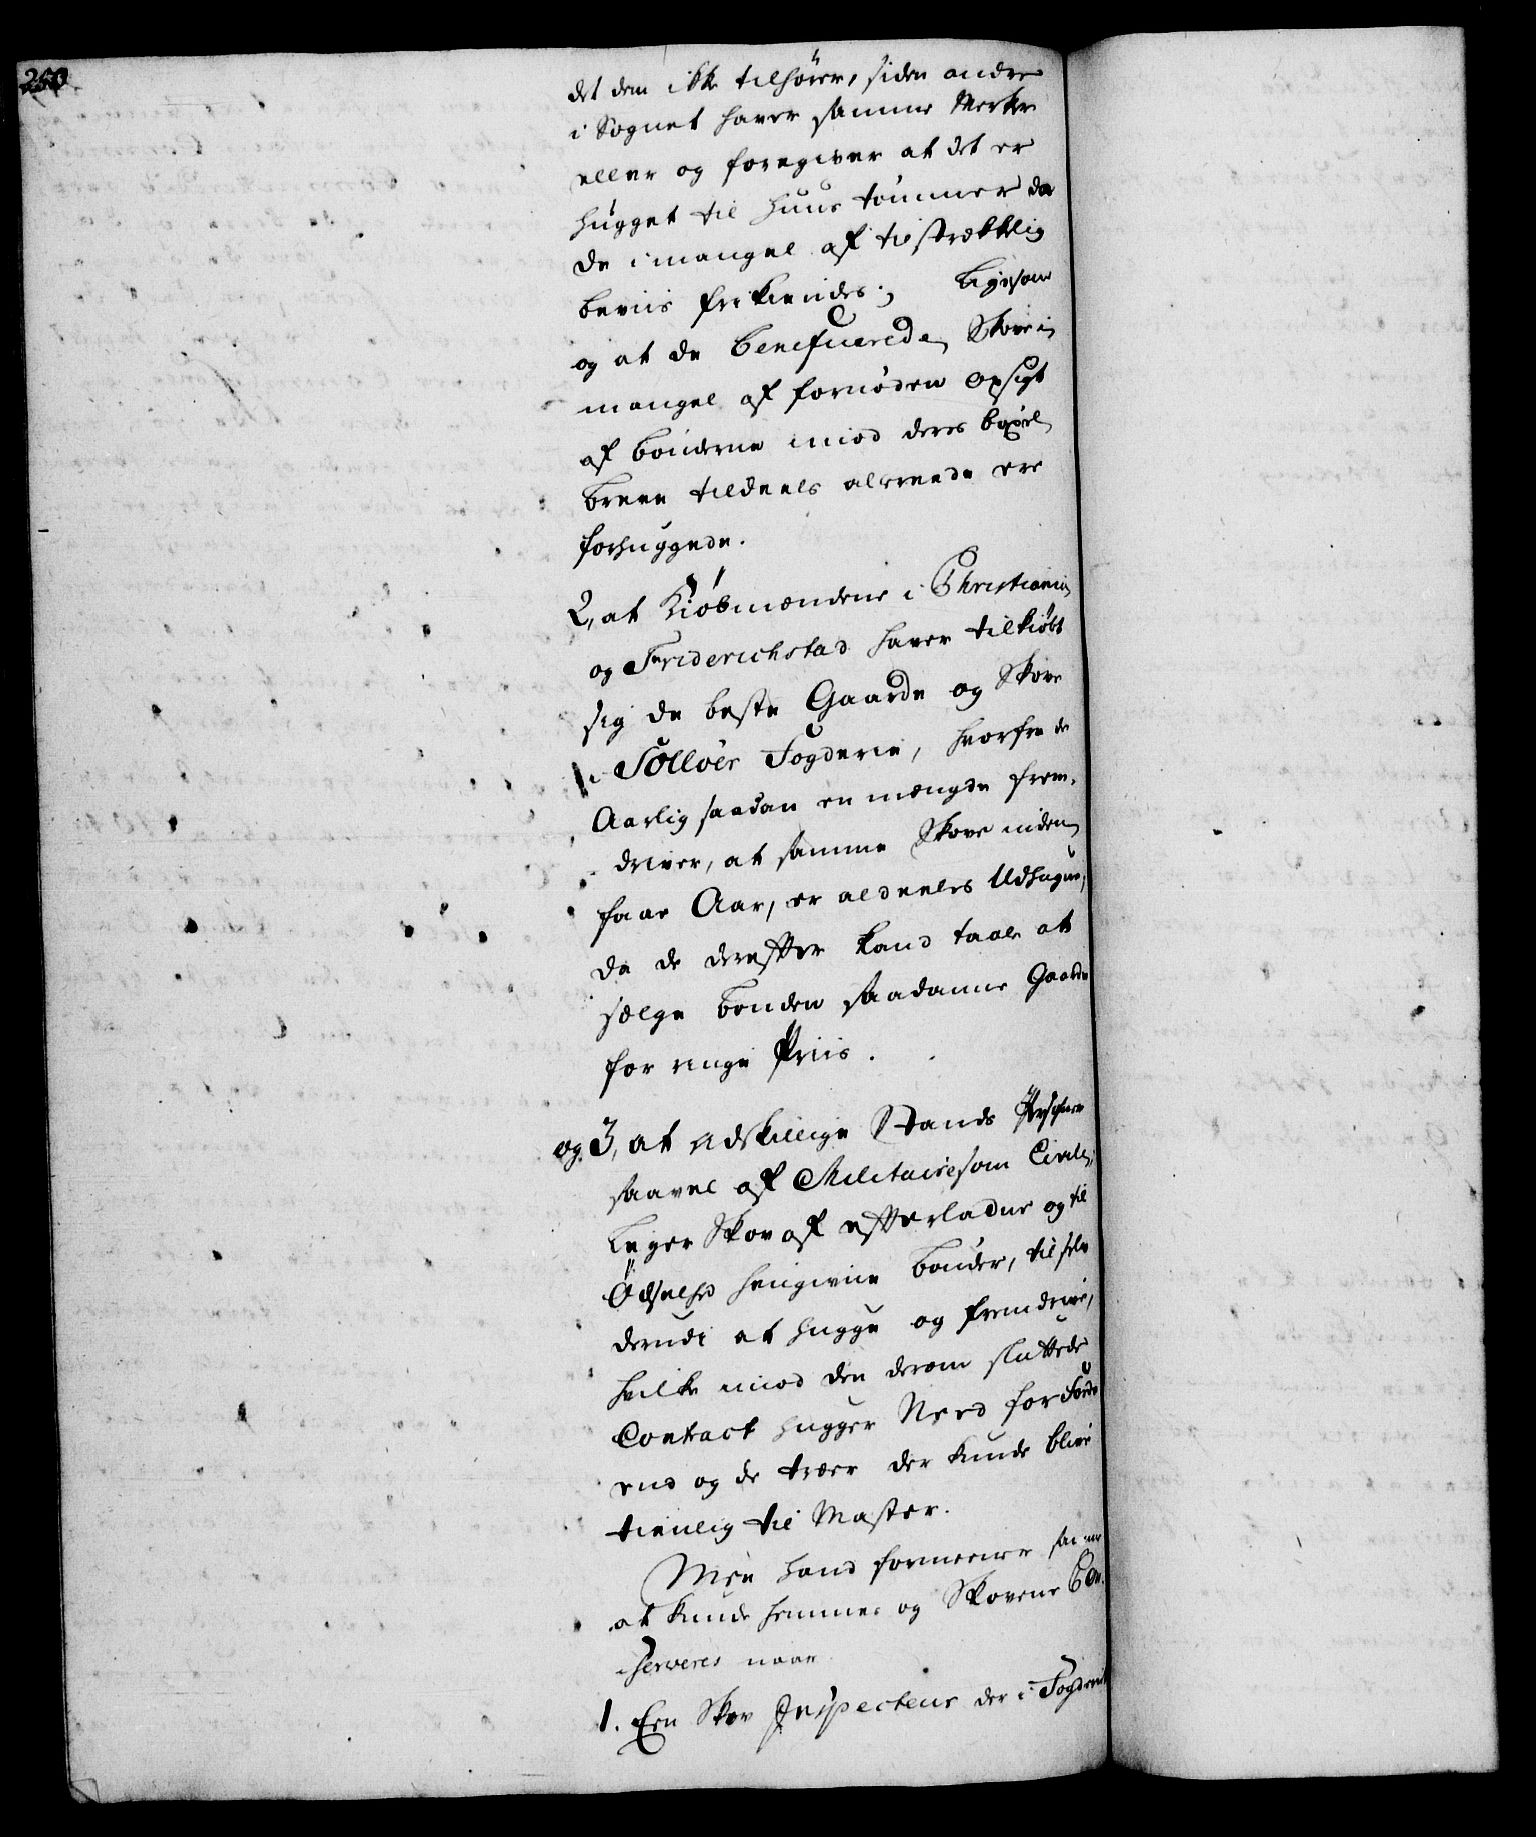 250
det dem ikke tilhörer, siden andre
i Sognet haver samme Merke
eller og foregiver at det er
hugget til Huus tömmer da
de i mangel af tilstrækkelig
beviis frikiendes; ligesom
og at de beneficerede Skove i
mangel af fornöden opsigt
af bönderne imod deres böxel
breve tildeels allereede ere
forhuggede.
2, at Kiöbmændene i Christiania
og Friderichstad haver tilkiöbt
sig de beste Gaarde og Skove
i Sollöer Fogderie, hvorfra de
Aarlig saadan en mængde frem-
driver, at samme Skove inden
faae Aar, er aldeeles Udhugne,
da de derefter kand taale at
sælge bonden saadanne Gaarde
for ringe Priis.
og 3, at adskillige Stands Persohner
saavel af Militaire som Civile,
leyer Skov af efterladne og til
Ödselhed hengivne bönder, til selv
derudi at hugge og fremdrive,
hvilke imod den derom sluttede
Contract hugger Need for Fode
end og de træer der kunde blive
tienlig til Master.
Men hand formeener saadant
at kunde hemmes og Skovene Con-
serveres naar
1. Een Skov Inspecteur der i Fogderiet